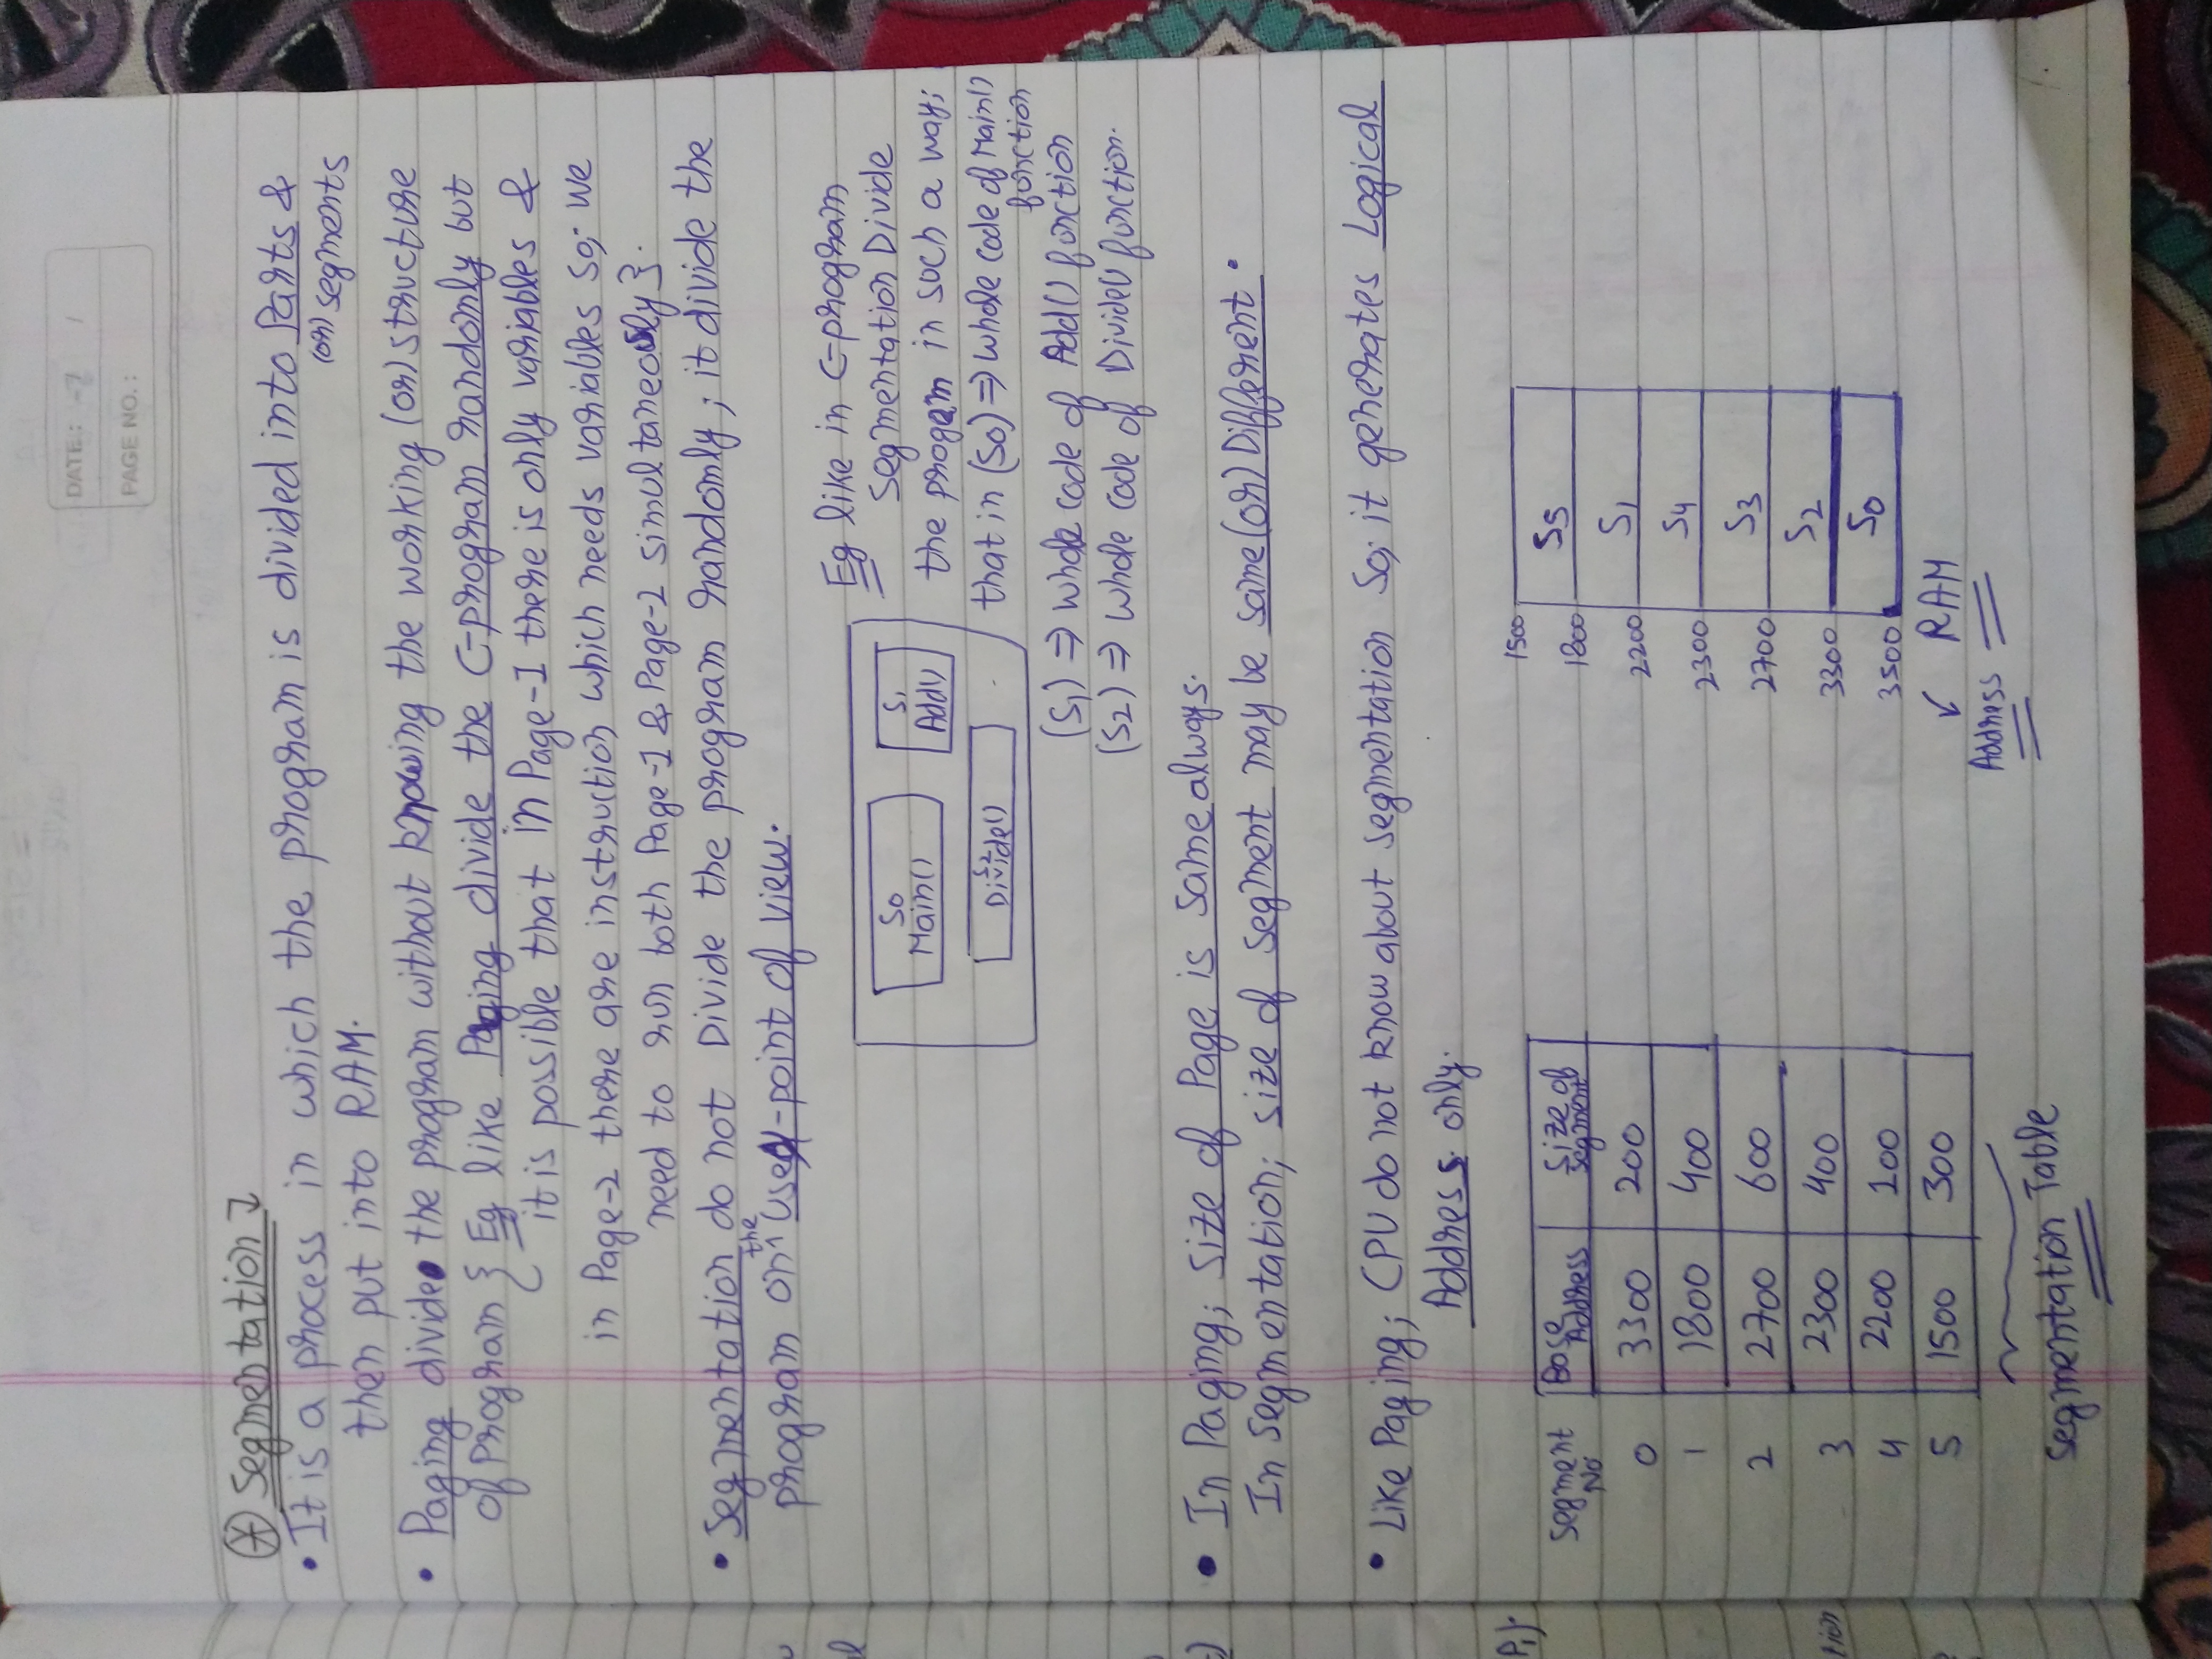 DATE: -7 /
PAGE NO.:
Segmentation
• It is a process in which the program is divided into Parts &
(or) segments
then put into RAM.
• Paging divide the program without knowing the working (or) structure
of Program { Eg like Paging divide the C-program randomly but
it is possible that in Page-1 there is only variables &
in Page-2 there are instruction which needs variables so; we
need to run both Page-1 & Page-2 simultaneously }.
• Segmentation do not Divide the program randomly; it divide the
the
program on ^ user-point of view.
Eg like in C-program
Segmentation Divide
the progam in such a way;
that in (S0) => whole code of Main()
function
(S1) => whole code of Add() function
(S2) => whole code of Divide() function.
S0
Main()
S1
Add()
S2
Divide()
• In Paging; size of Page is same always.
In Segmentation; size of segment may be same (or) Different.
• Like Paging; CPU do not know about segmentation So; it generates Logical
Address only.
Segment No Base Address Size of Segment
0 3300 200
1 1800 400
2 2700 600
3 2300 400
4 2200 100
5 1500 300
Segmentation Table
1500
S5
1800
S1
2200
S4
2300
S3
2700
S2
3300
S0
3500
RAM
Address
P1).
tion